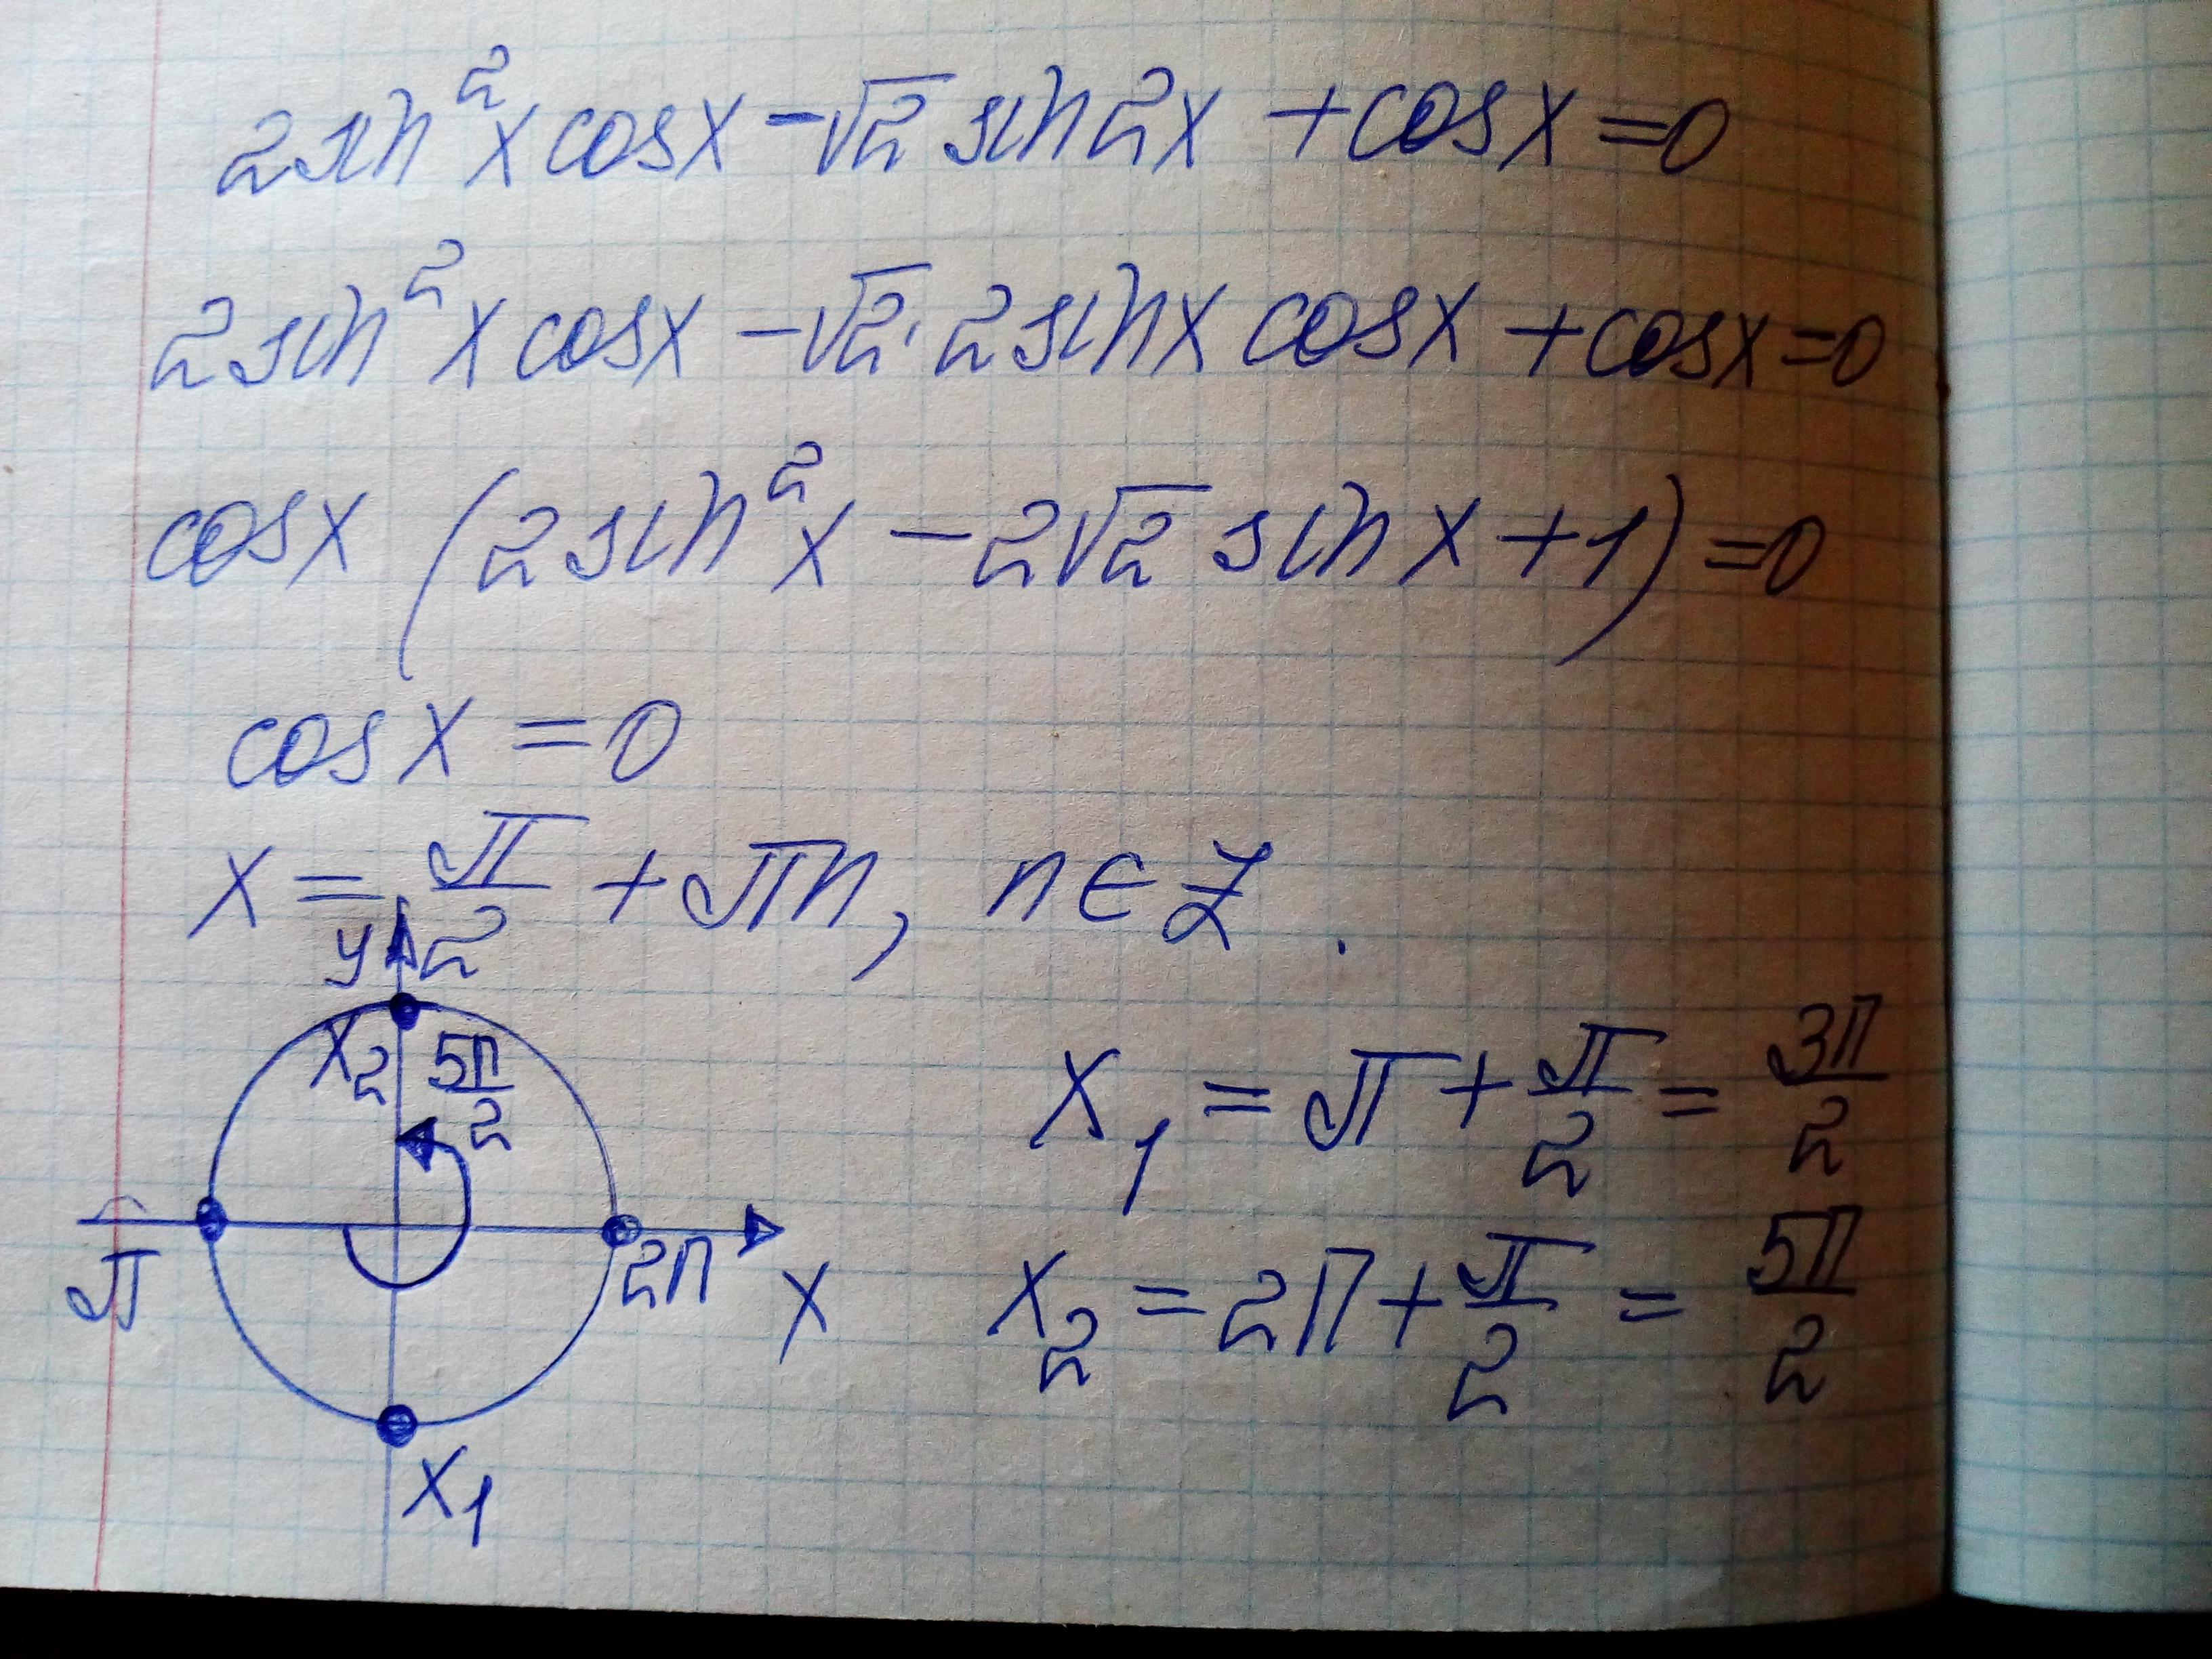 2sin²x cosx - √2 sin2x + cosx = 0
2sin²x cosx - √2 · 2sinx cosx + cosx = 0
cosx (2sin²x - 2√2 sinx + 1) = 0
cosx = 0
x = π/2 + πn, n ∈ Z.
y
x₂ 5π/2
π 2π x
x₁
x₁ = π + π/2 = 3π/2
x₂ = 2π + π/2 = 5π/2